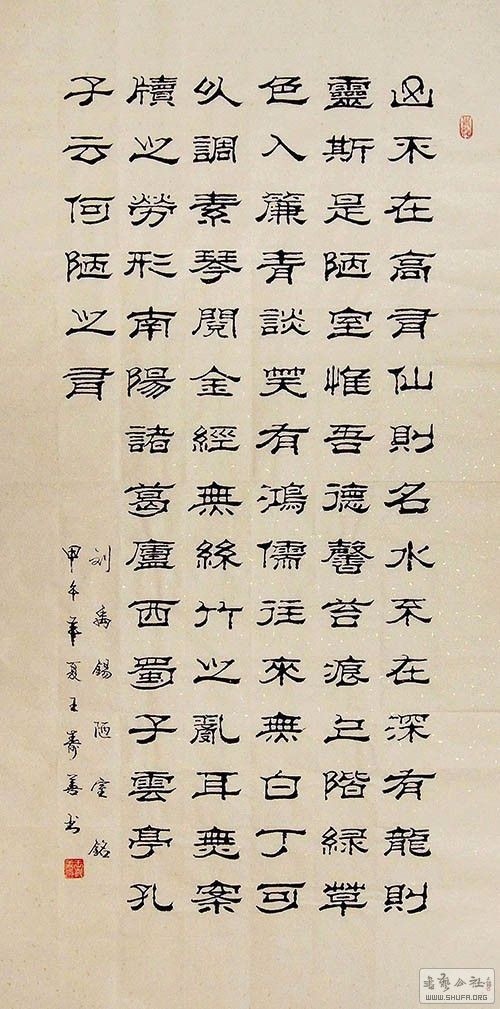 山不在高有仙則名水不在深有龍則
靈斯是陋室惟吾德馨苔痕上階緑草
色入簾青談笑有鴻儒往來無白丁可
以調素琴閱金經無絲竹之亂耳無案
牘之勞形南陽諸葛廬西蜀子雲亭孔
子云何陋之有
刘禹錫陋室銘
甲午夏王壽善书
WWW.SHUFA.ORG